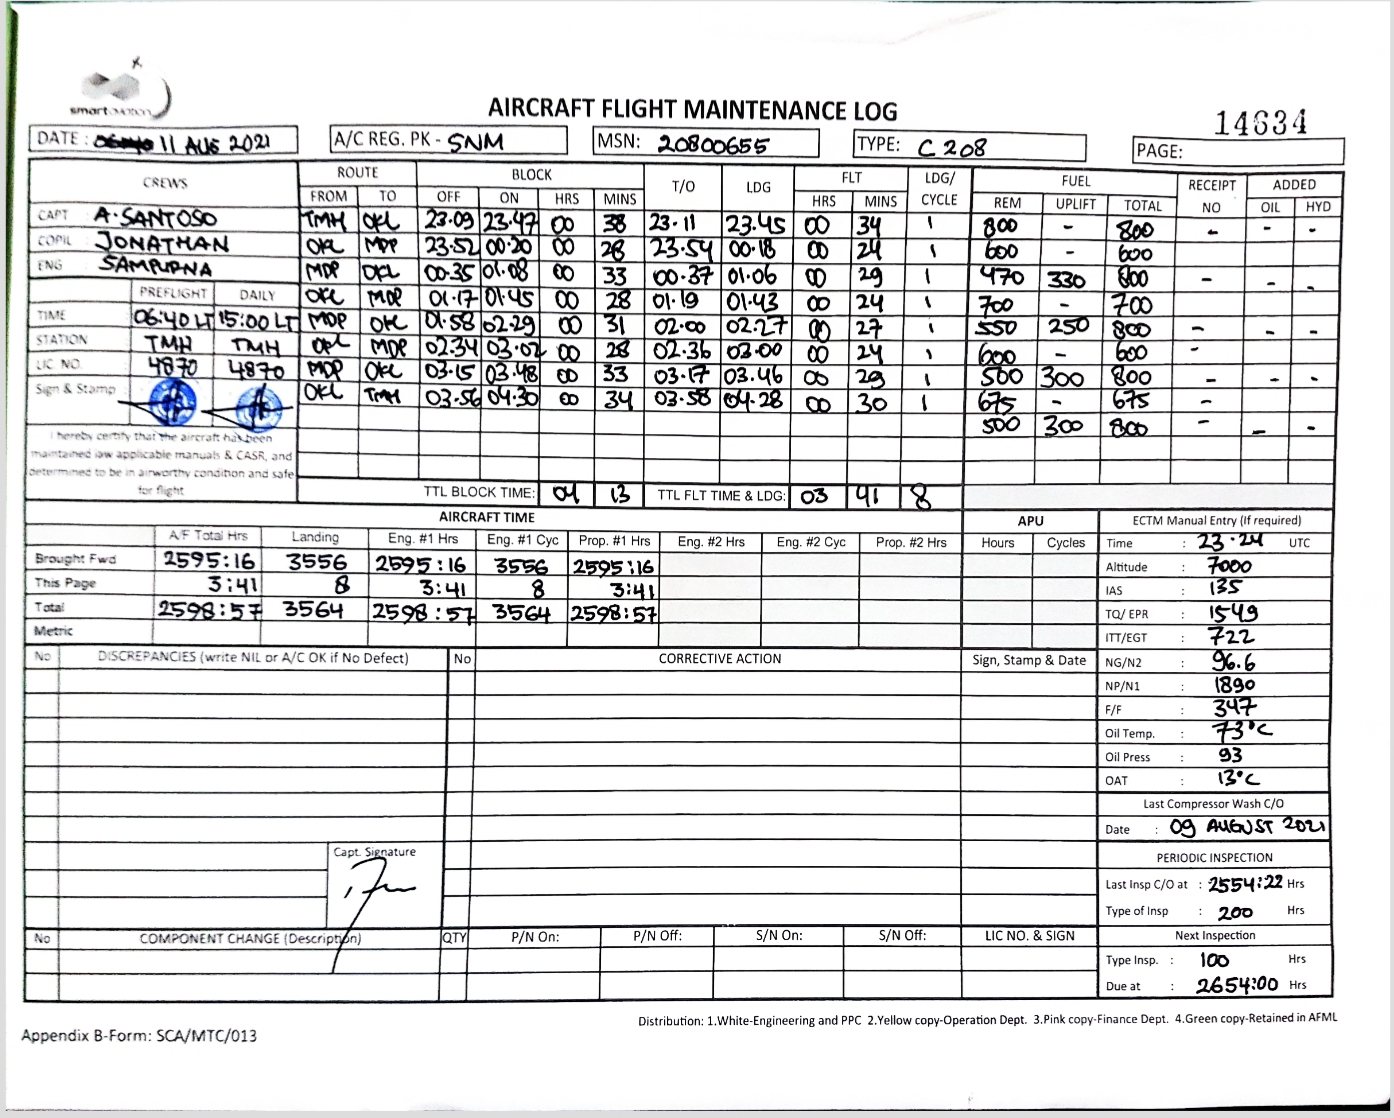 smart aviation
AIRCRAFT FLIGHT MAINTENANCE LOG
14634
DATE : 11 AUG 2021 A/C REG. PK - SNM MSN: 20800655 TYPE: C 208 PAGE:
CREWS ROUTE BLOCK T/O LDG FLT LDG/ CYCLE FUEL RECEIPT NO ADDED
FROM TO OFF ON HRS MINS HRS MINS REM UPLIFT TOTAL OIL HYD
CAPT A. SANTOSO TMH OKL 23.09 23.47 00 38 23.11 23.45 00 34 1 800 - 800 - - -
COPIL JONATHAN OKL MDP 23.52 00.20 00 28 23.54 00.18 00 24 1 600 - 600
ENG SAMPURNA MDP OKL 00.35 01.08 00 33 00.37 01.06 00 29 1 470 330 800 - - -
PREFLIGHT DAILY OKL MDP 01.17 01.45 00 28 01.19 01.43 00 24 1 700 - 700
TIME 06:40 LT 15:00 LT MDP OKL 01.58 02.29 00 31 02.00 02.27 00 27 1 550 250 800 - - -
STATION TMH TMH OKL MDP 02.34 03.02 00 28 02.36 03.00 00 24 1 600 - 600 -
LIC NO. 4870 4870 MDP OKL 03.15 03.48 00 33 03.17 03.46 00 29 1 500 300 800 - - -
Sign & Stamp OKL TMH 03.56 04.30 00 34 03.58 04.28 00 30 1 675 - 675 -
500 300 800 - - -
I hereby certify that the aircraft has been
maintained iaw applicable manuals & CASR, and
determined to be in airworthy condition and safe
for flight
TTL BLOCK TIME: 04 13 TTL FLT TIME & LDG: 03 41 8
AIRCRAFT TIME APU ECTM Manual Entry (If required)
A/F Total Hrs Landing Eng. #1 Hrs Eng. #1 Cyc Prop. #1 Hrs Eng. #2 Hrs Eng. #2 Cyc Prop. #2 Hrs Hours Cycles Time : 23.24 UTC
Brought Fwd 2595:16 3556 2595:16 3556 2595:16 Altitude : 7000
This Page 3:41 8 3:41 8 3:41 IAS : 135
Total 2598:57 3564 2598:57 3564 2598:57 TQ/ EPR : 1549
Metric ITT/EGT : 722
No DISCREPANCIES (write NIL or A/C OK if No Defect) No CORRECTIVE ACTION Sign, Stamp & Date NG/N2 : 96.6
NP/N1 : 1890
F/F : 347
Oil Temp. : 73°C
Oil Press : 93
OAT : 13°C
Last Compressor Wash C/O
Date : 09 AUGUST 2021
Capt. Signature
PERIODIC INSPECTION
Last Insp C/O at : 2554:22 Hrs
Type of Insp : 200 Hrs
No COMPONENT CHANGE (Description) QTY P/N On: P/N Off: S/N On: S/N Off: LIC NO. & SIGN Next Inspection
Type Insp. : 100 Hrs
Due at : 2654:00 Hrs
Distribution: 1.White-Engineering and PPC 2.Yellow copy-Operation Dept. 3.Pink copy-Finance Dept. 4.Green copy-Retained in AFML
Appendix B-Form: SCA/MTC/013